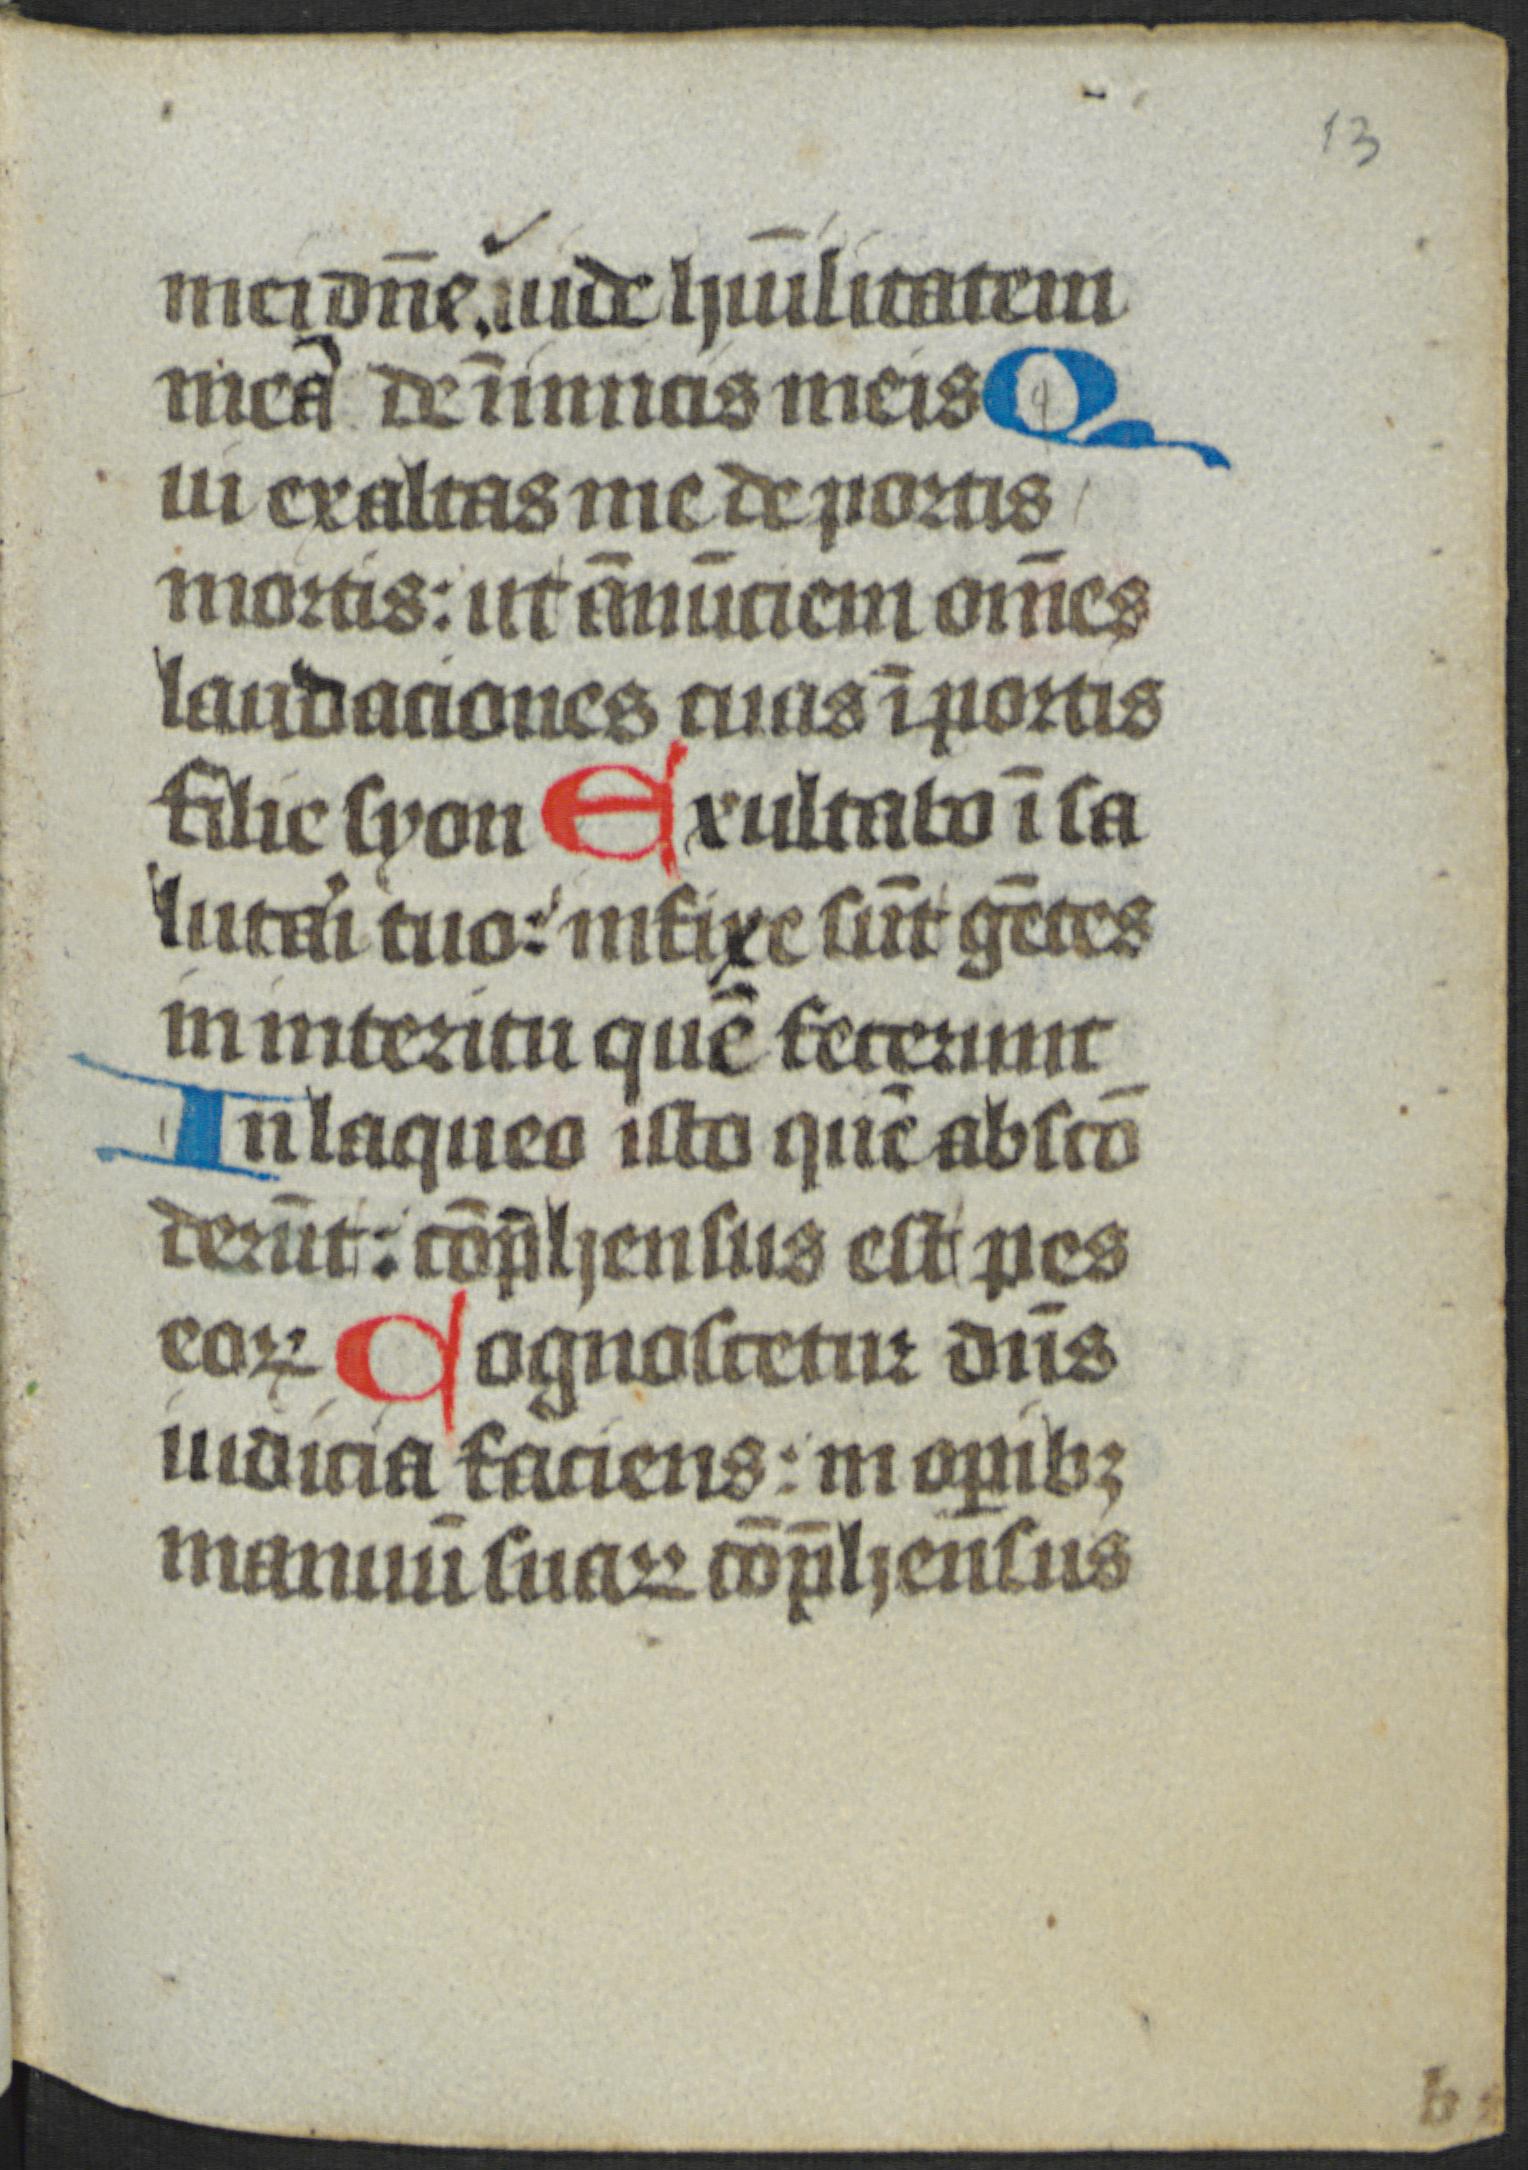 13
mei dn̄e. uide hūilitatem
meā de īimicis meis Q
ui exaltas me de portis
mortis: ut ānūciem om̄es
laudaciones tuas ī portis
filie syon Exultabo ī sa
lutari tuo: infixe sūt gētes
in interitu quē fecerunt
In laqueo isto quē abscō
derūt: cōp̄hensus est pes
eoꝝ Cognoscetur dn̄s
iudicia faciens: in oꝑibꝫ
manuū suaꝝ cōp̄hensus
b